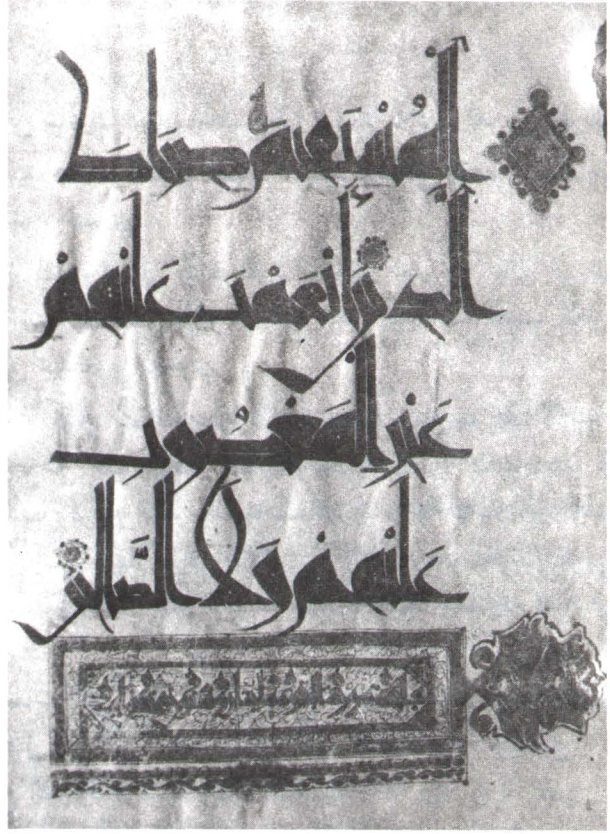 الْمُسْتَقِيمَ صِرَاطَ
الَّذِينَ أَنْعَمْتَ عَلَيْهِمْ
غَيْرِ الْمَغْضُوبِ
عَلَيْهِمْ وَلَا الضَّالِّينَ